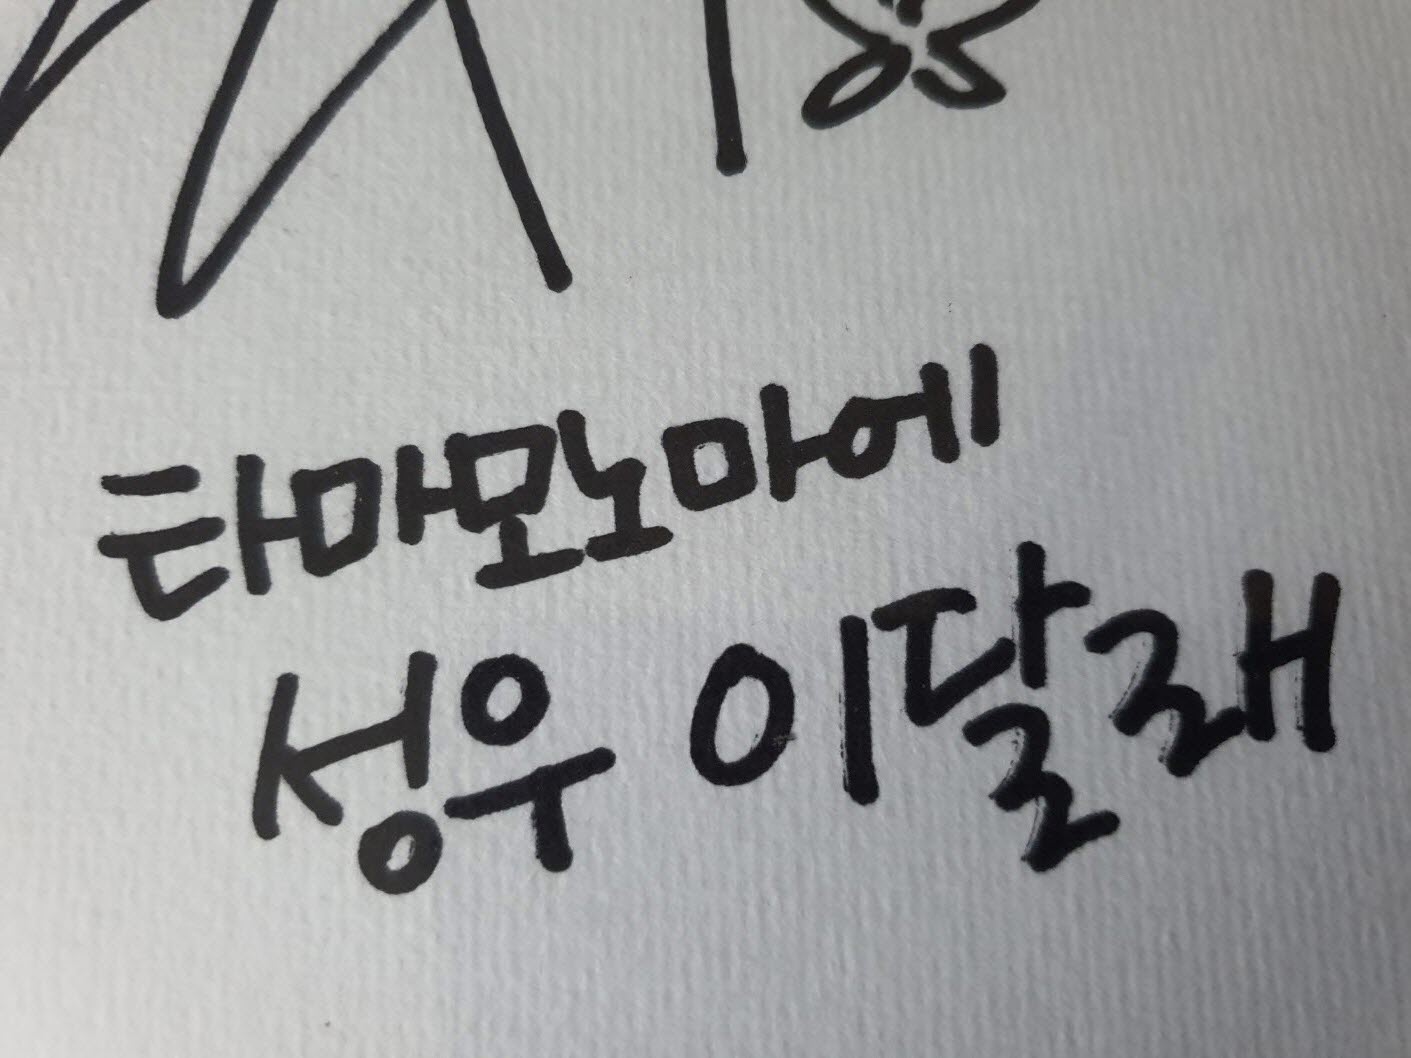 타마모노마에
성우 이달래